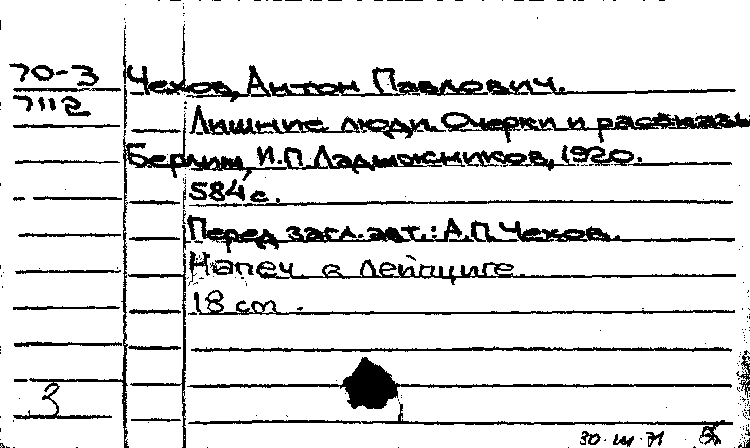 70-3 Чехов, Антон Павлович.
7112
Лишние люди. Очерки и рассказы
Берлин, И.П. Ладыжников, 1920.
584 с.
Перед загл. авт.: А.П. Чехов.
Напеч. в Лейпциге.
18 cm.
3
30·III·71